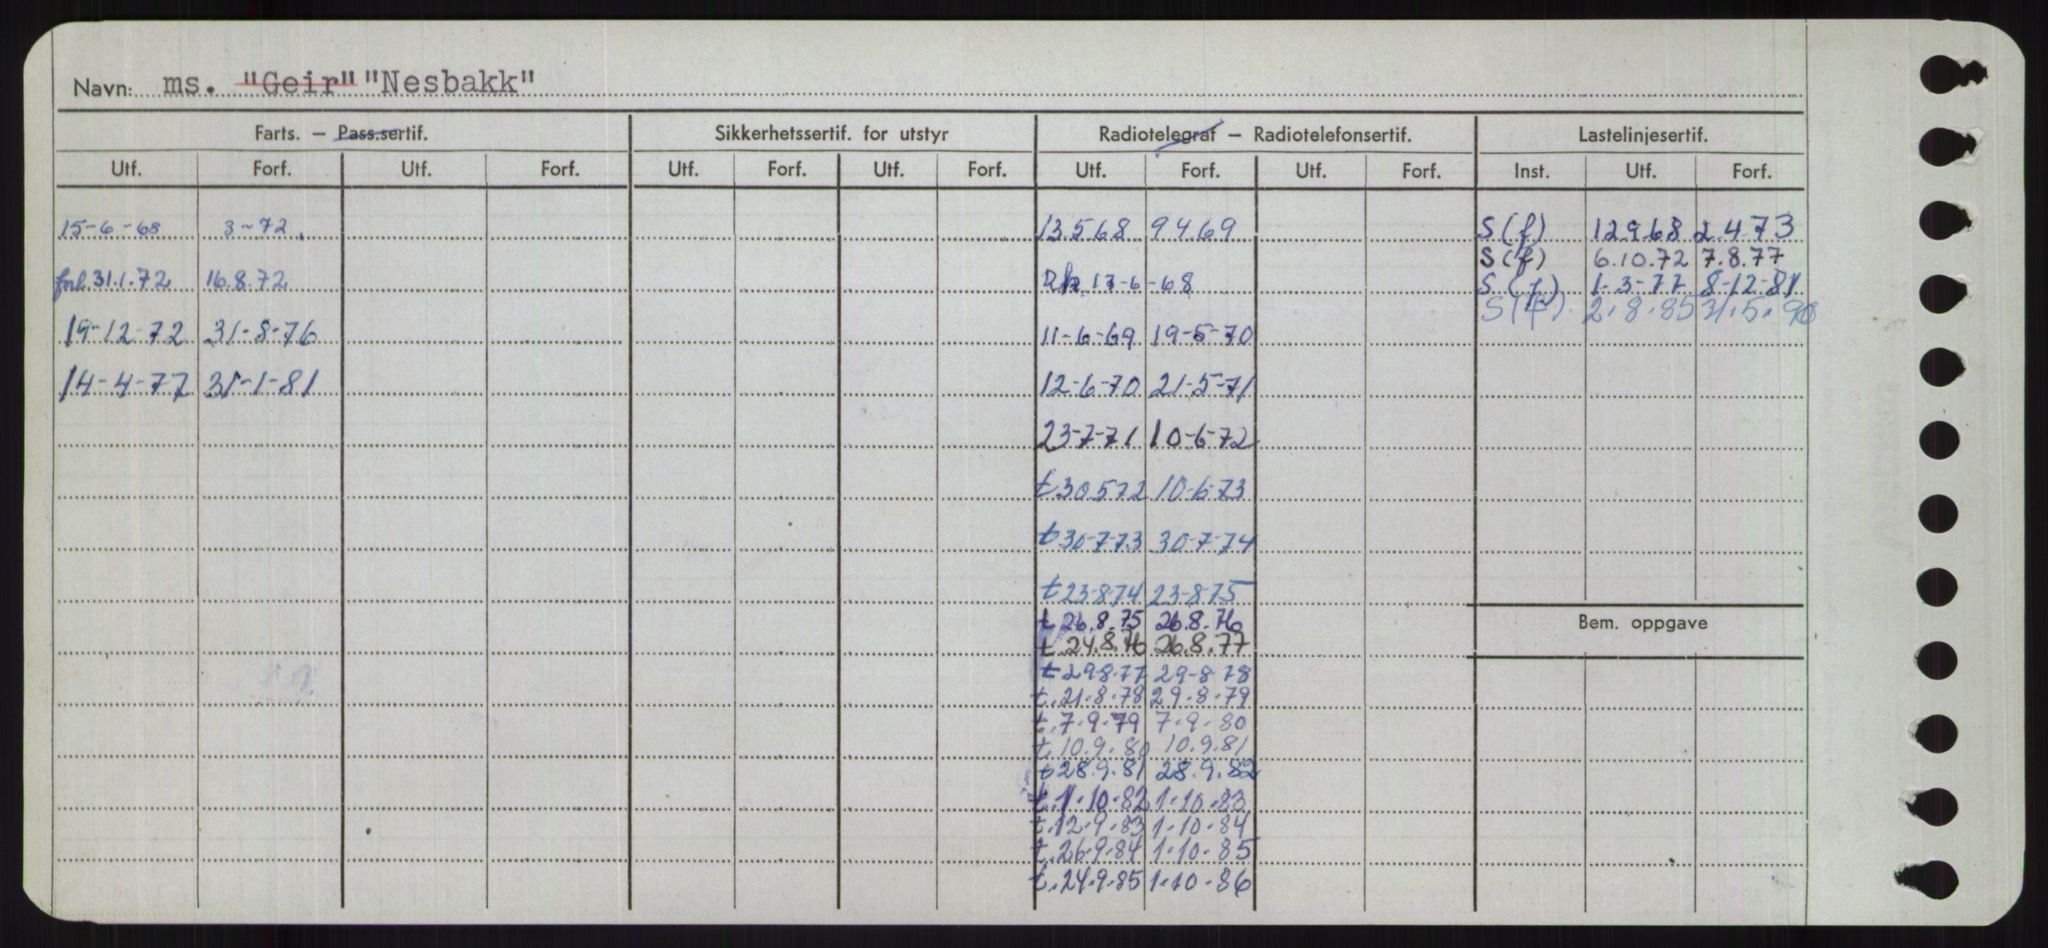 Navn: ms. "Geir" "Nesbakk"
Farts. — Pass.sertif. Sikkerhetssertif. for utstyr Radiotelegraf — Radiotelefonsertif. Lastelinjesertif.
Utf. Forf. Utf. Forf. Utf. Forf. Utf. Forf. Utf. Forf. Utf. Forf. Inst. Utf. Forf.
15-6-68 3-72. 13.568 9469 S(f) 12968 2.473
S(f) 6.10.72 7.8.77
forl. 31.1.72 16.8.72 17-6-68 S(f) 1-3-77 8-12-81
S(f). 2.8.85 21.5.90
19-12-72 31-8-76 11-6-69 19-5-70
14-4-77 31-1-81 12-6-70 21-5-71
23-7-71 10-6-72
t 30572 10-6-73
t 30-773 30-7-74
t 23-874 23-875
t 26.8.75 26.8.76 Bem. oppgave
t 24.8.76 26.8.77
t 29877 29-8-78
t. 21.8.78 29.8.79
t. 7.9.79 7.9.80
t. 10.9.80 10.9.81
t 28.9.81 28.9.82
t. 1.10.82 1.10.83
t. 12.9.83 1.10.84
t. 26.9.84 1.10.85
t. 24.9.85 1.10.86